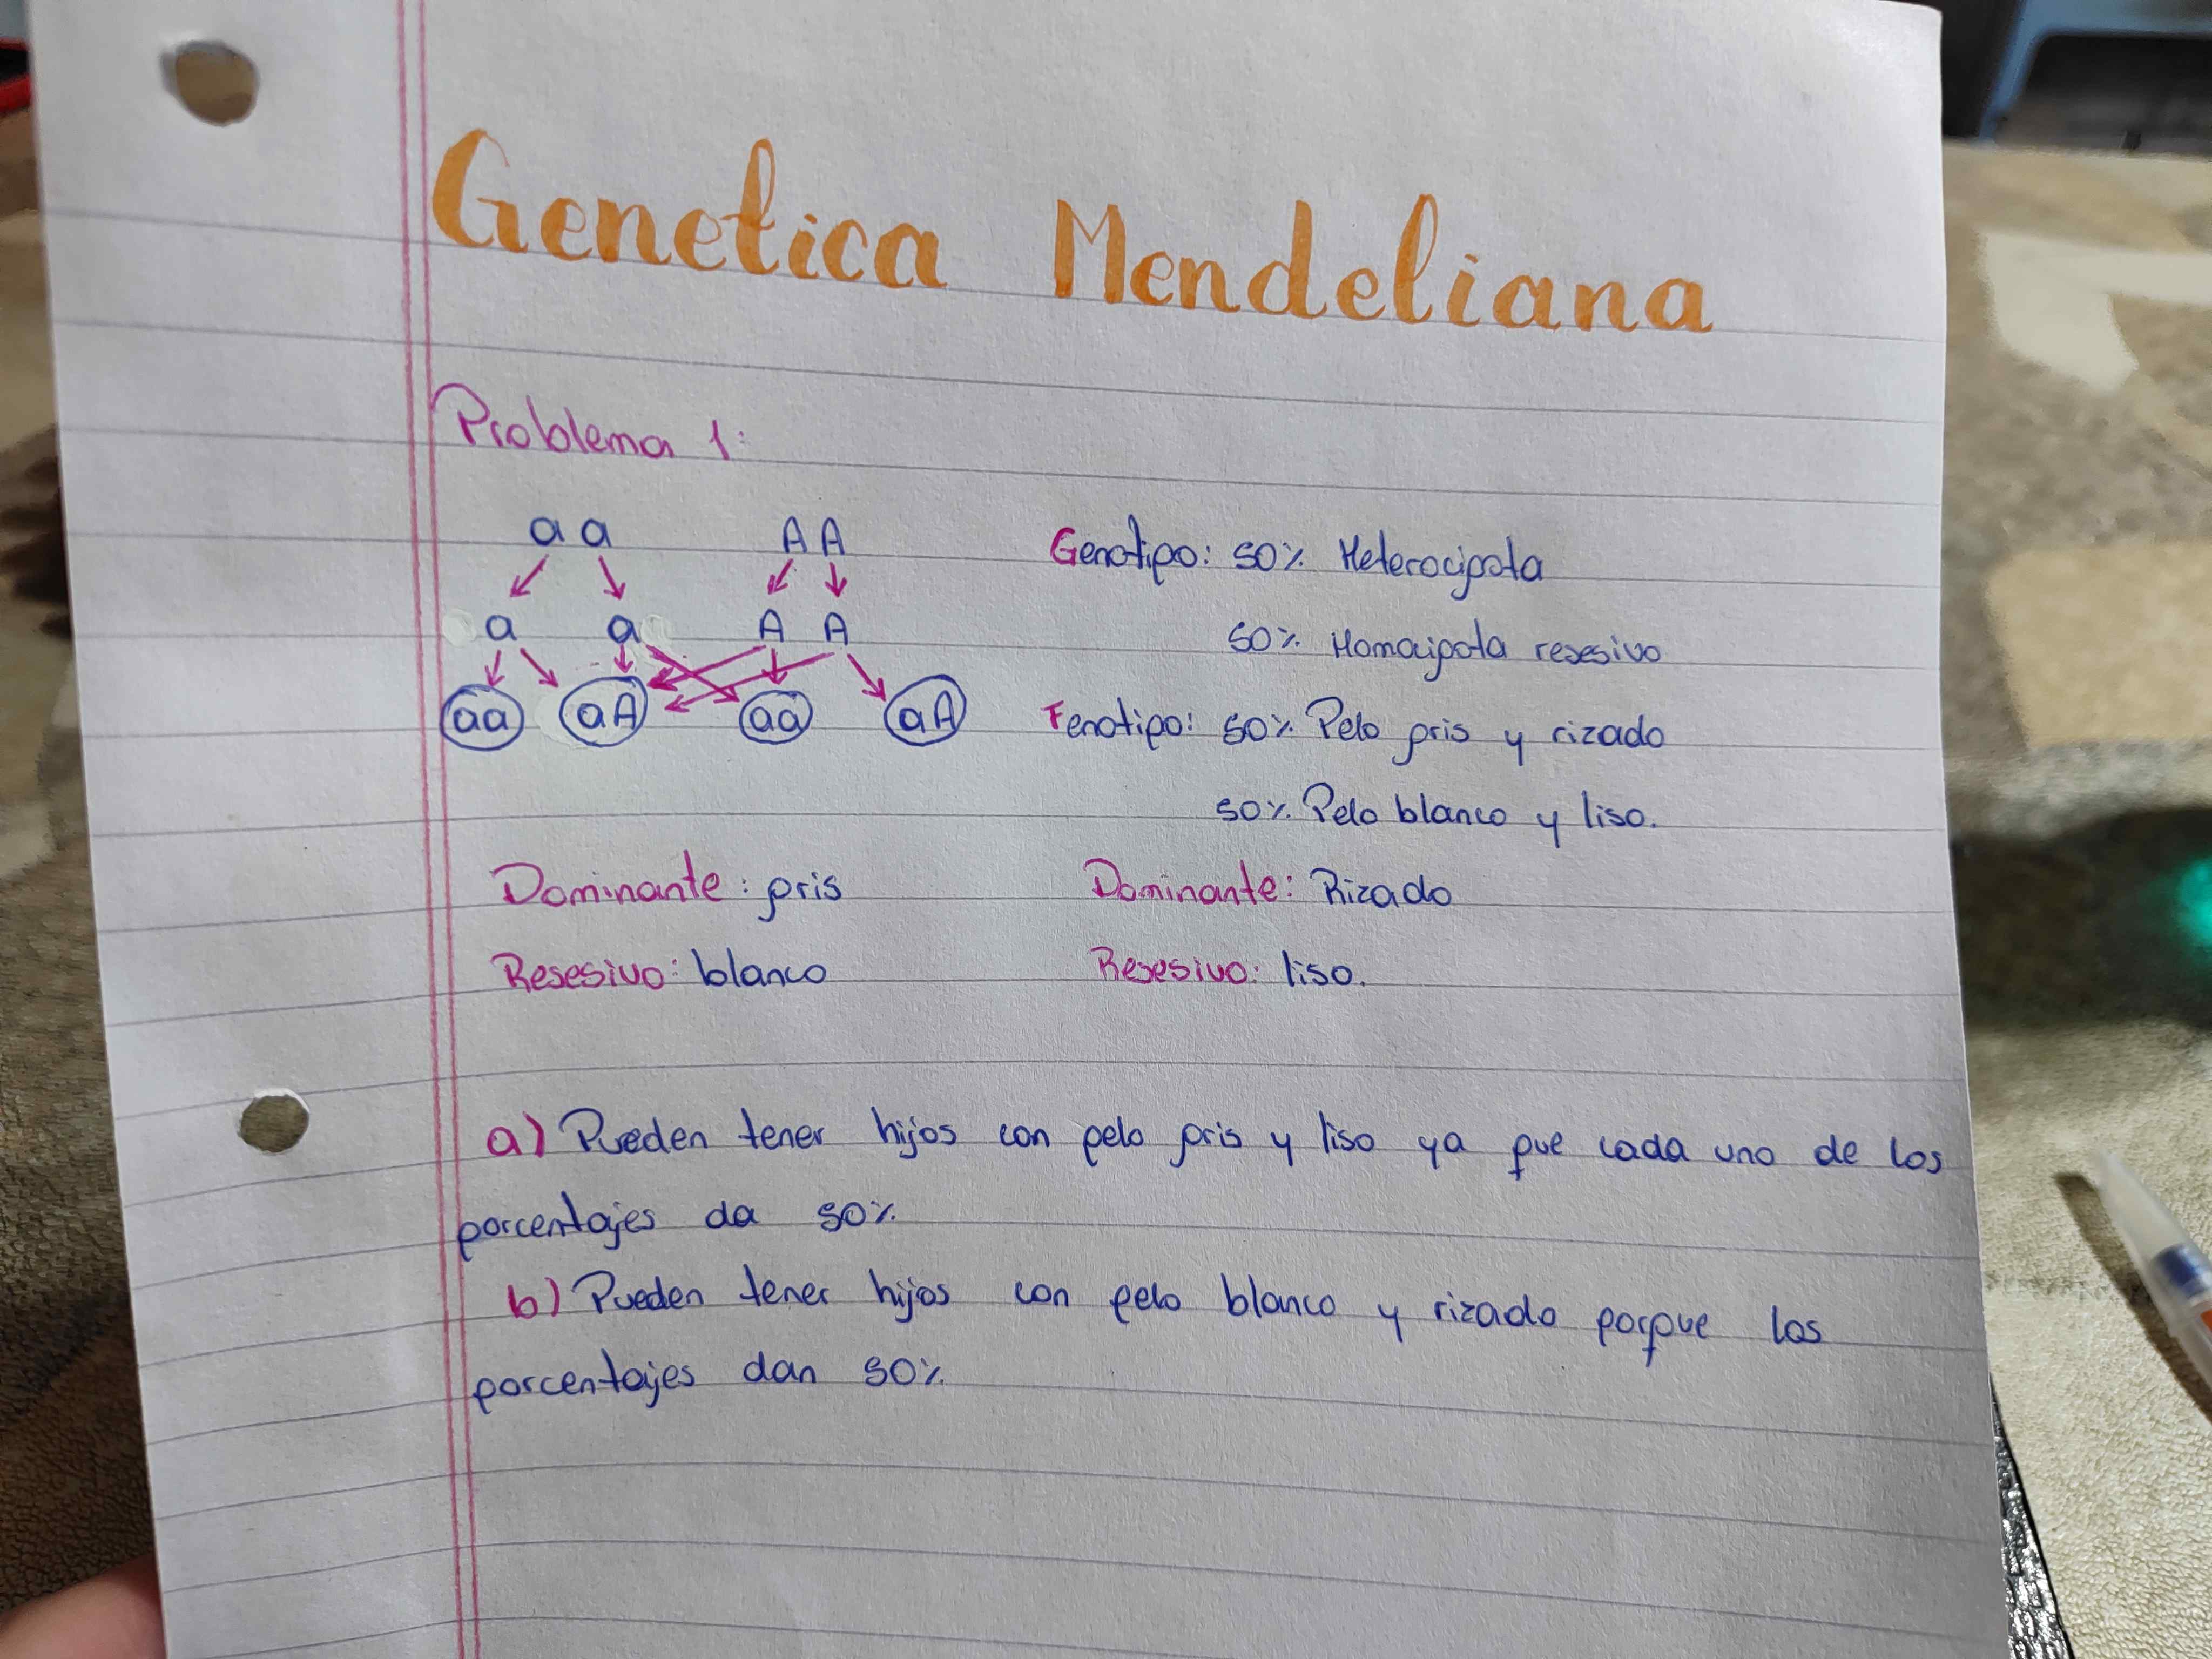 Genetica Mendeliana
Problema 1:
aa AA
a a A A
aa aA aa aA
Genotipo: 50% Heterocigota
50% Homocigota resesivo
Fenotipo: 50% Pelo gris y rizado
50% Pelo blanco y liso.
Dominante: gris
Resesivo: blanco
Dominante: Rizado
Resesivo: liso.
a) Pueden tener hijos con pelo gris y liso ya que cada uno de los
porcentajes da 50%
b) Pueden tener hijos con pelo blanco y rizado porque los
porcentajes dan 50%